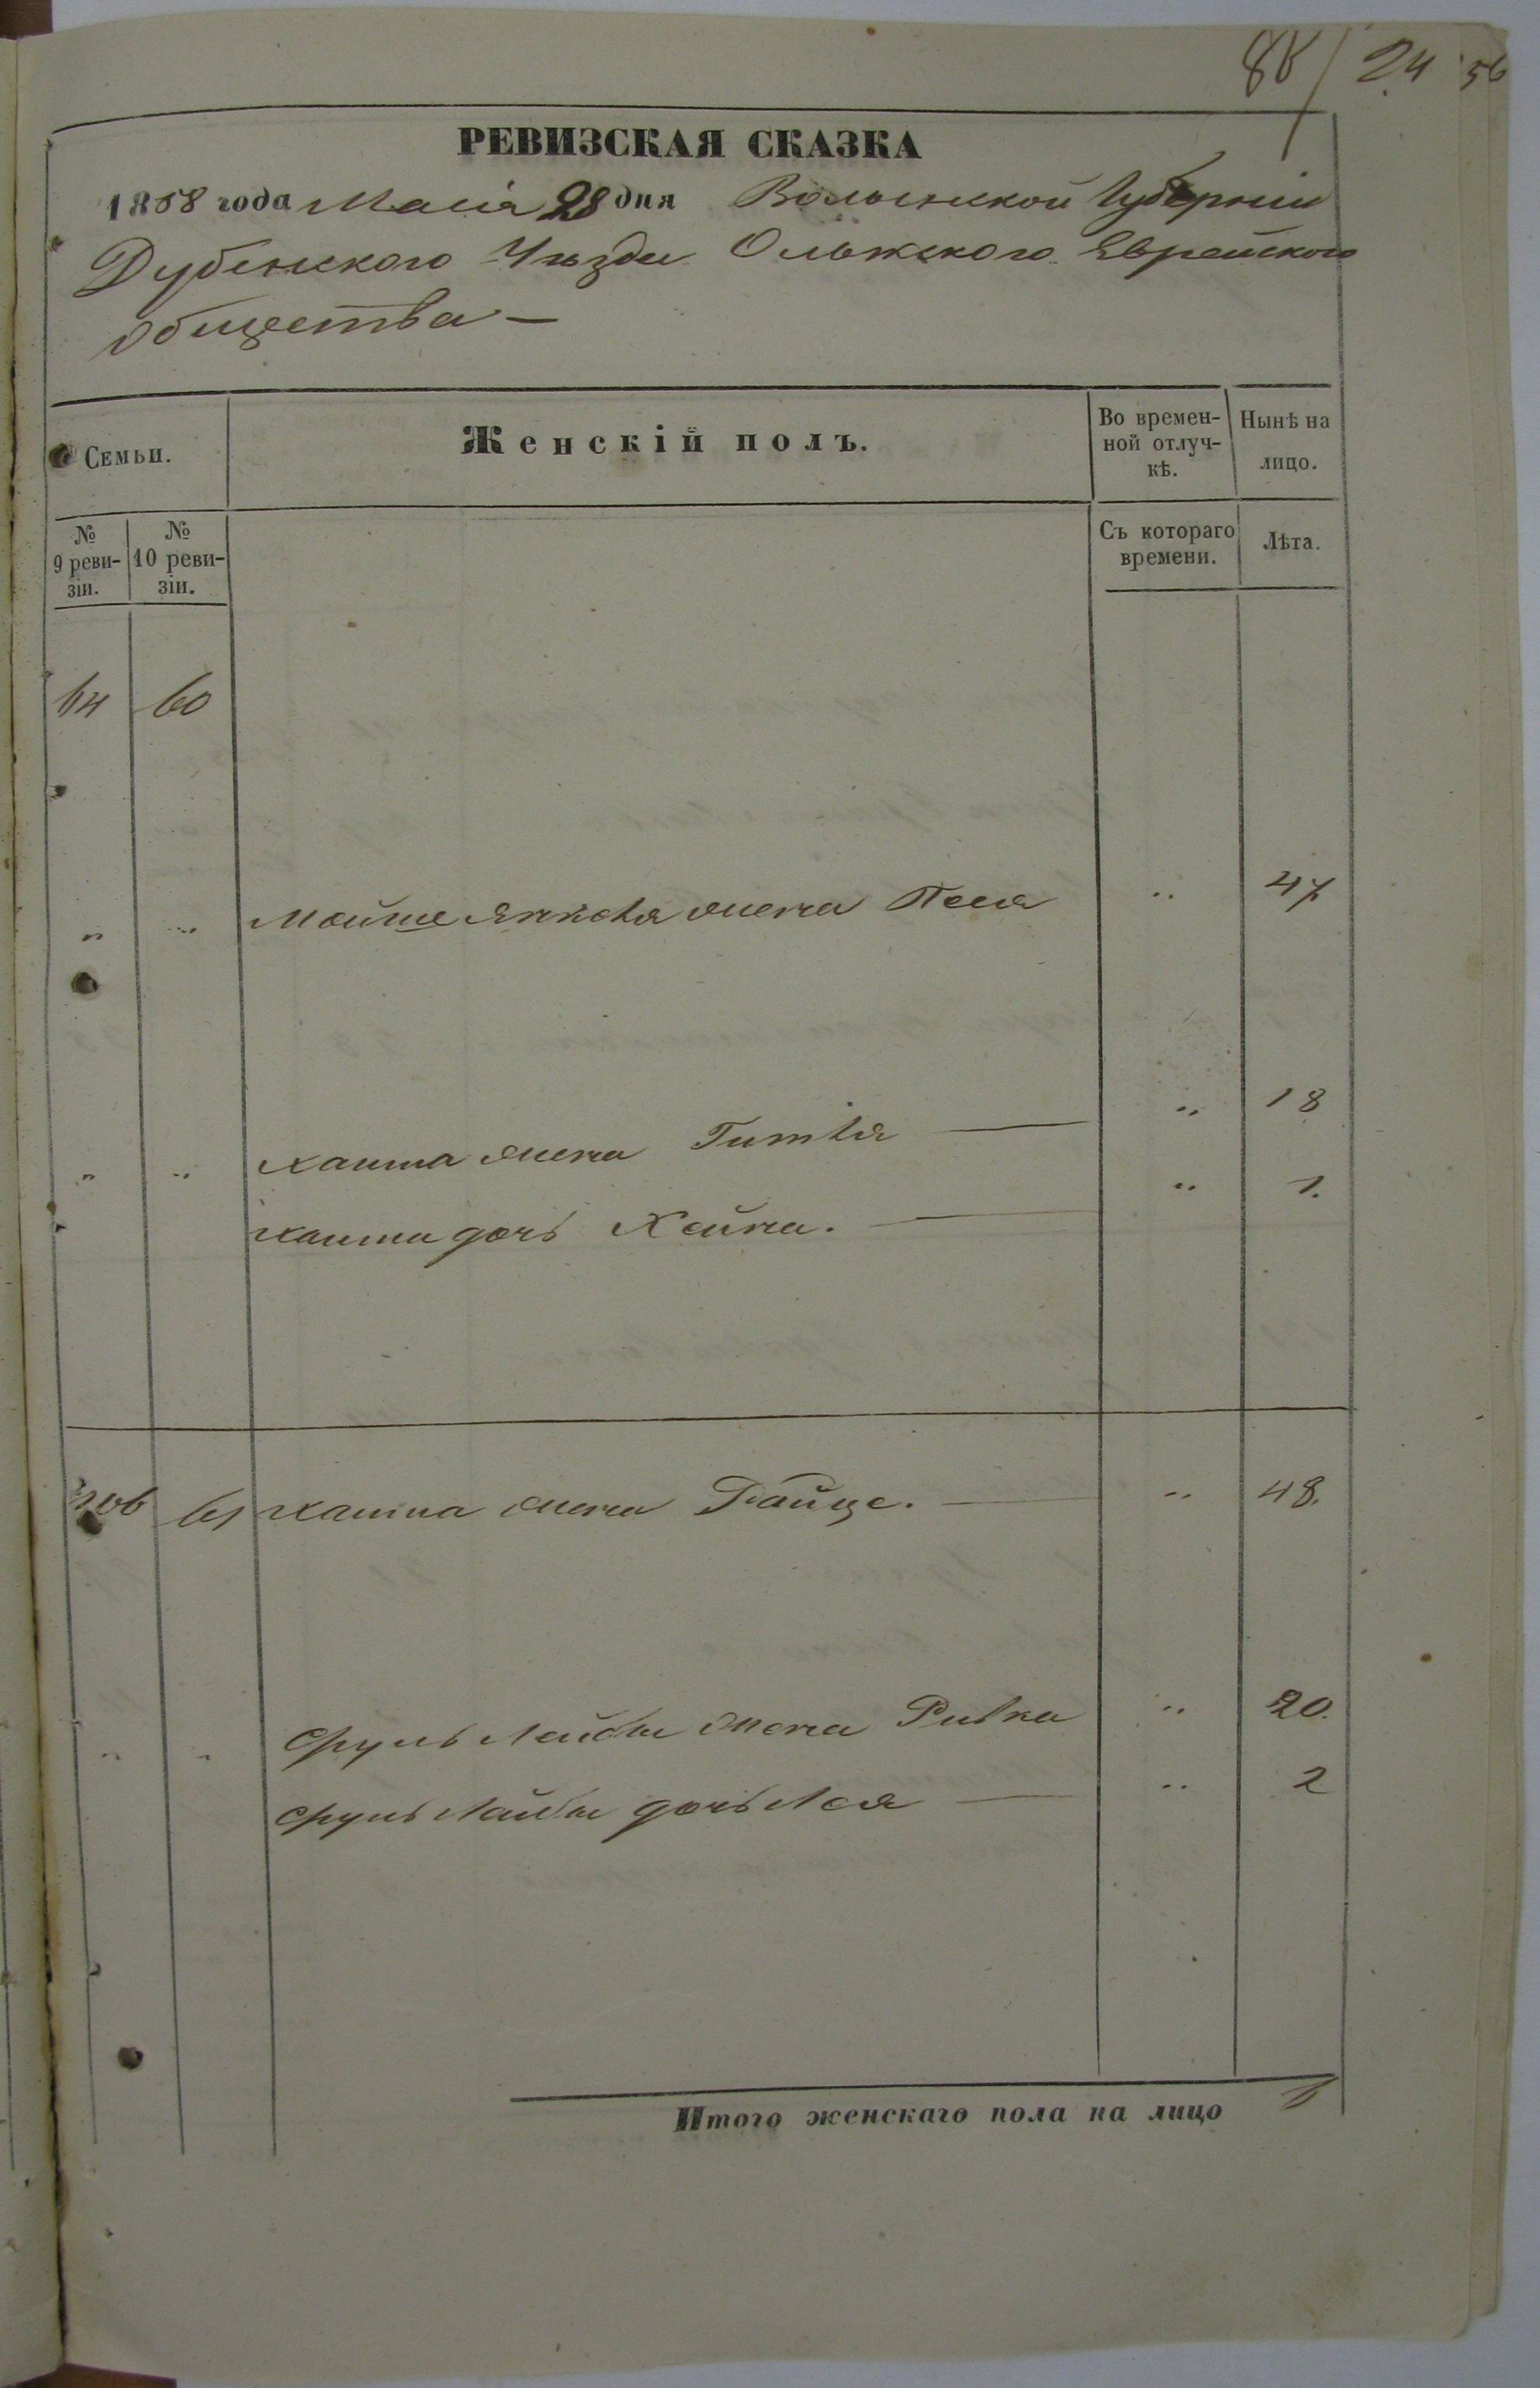 24 56
РЕВИЗСКАЯ СКАЗКА
1858 года Маия 28 дня Волынской Губерніи
Дубенского Уѣзда Олыкского Еврейского
общества —
Семьи.
Женскій полъ.
Во времен-
ной отлуч-
кѣ.
Нынѣ на
лицо.
№
9 реви-
зіи.
№
10 реви-
зіи.
Съ котораго
времени.
Лѣта.
64 60
" " Мойше Янкеля жена Песя " 47
" " Хаима жена Гитля — " 18
Хаима дочь Хайка. — " 1.
61 Хаима жена Райце. — " 48.
" " Сруль Лейбы жена Ривка " 20.
Сруль Лейбы дочь Лея — " 2
Итого женскаго пола на лицо